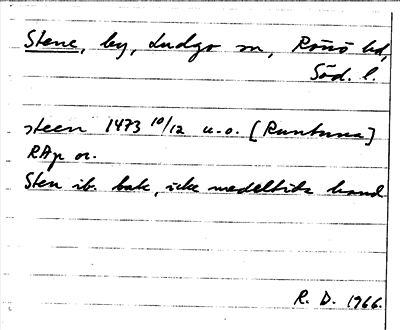 Stene, by, Ludgo sn, Rönö hd,
Söd. l.
steen 1473 10/12 u.o. [Runtuna]
RAp or.
Sten ib. bak, icke medeltida hand
R. D. 1966.